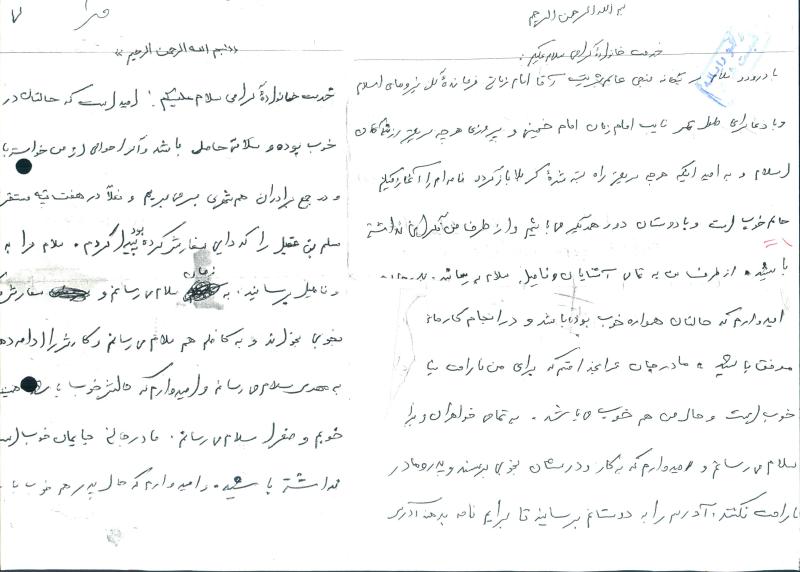 بسم الله الرحمن الرحیم
خدمت خانواده گرامی سلام علیکم:
با درود و سلام بر یگانه منجی عالم بشریت آقا امام زمان فرمانده کل نیروهای اسلام
و با دعا برای طول عمر نایب امام زمان امام خمینی و پیروزی هرچه سریعتر رزمندگان
اسلام و به امید اینکه هرچه سریعتر راه بسته شده کربلا باز گردد نامه ام را آغاز میکنم
حالم خوب است و با دوستان دور همدیگر می باشیم و از طرف من نگرانی نداشته
باشید. از طرف من به تمامی آشنایان و فامیل سلام برسانید.
امیدوارم که حالتان همواره خوب بوده باشد و در انجام کارها
موفق باشید. مادرجان برای من ناراحت
خوب است و حال من هم خوب می باشد. به تمامی خواهران و
سلام می رسانم و امیدوارم که به کار و درستان بخوبی برسند و پدر و مادر
ناراحت نکنند. آدرسم را به دوستانم برسانید تا برایم نامه بدهند آدرس
۷
«بسم الله الرحمن الرحیم»
خدمت خانواده گرامی سلام علیکم: امید است که حالتان در
خوب بوده و سلامتی حاصل باشد و اگر احوالی از من خواسته با
و در جمع برادران هم شهری بسر می بریم و فعلاً در هفت تپه مستقر
مسلم بن عقیل را که دایی سفارش کرده بود پیدا کردم. سلام مرا به
و فامیل برسانید. به زمان سلام می رسانم و سفارش
بخوبی بخواند و به کاظم هم سلام می رسانم و کارش را ادامه دهد
به مهدی سلام می رسانم و امیدوارم که حالش خوب باشد
خوبم و صغرا سلام می رسانم. مادر جان جایمان خوب است
نداشته باشید. و امیدوارم که حال پدر هم خوب با